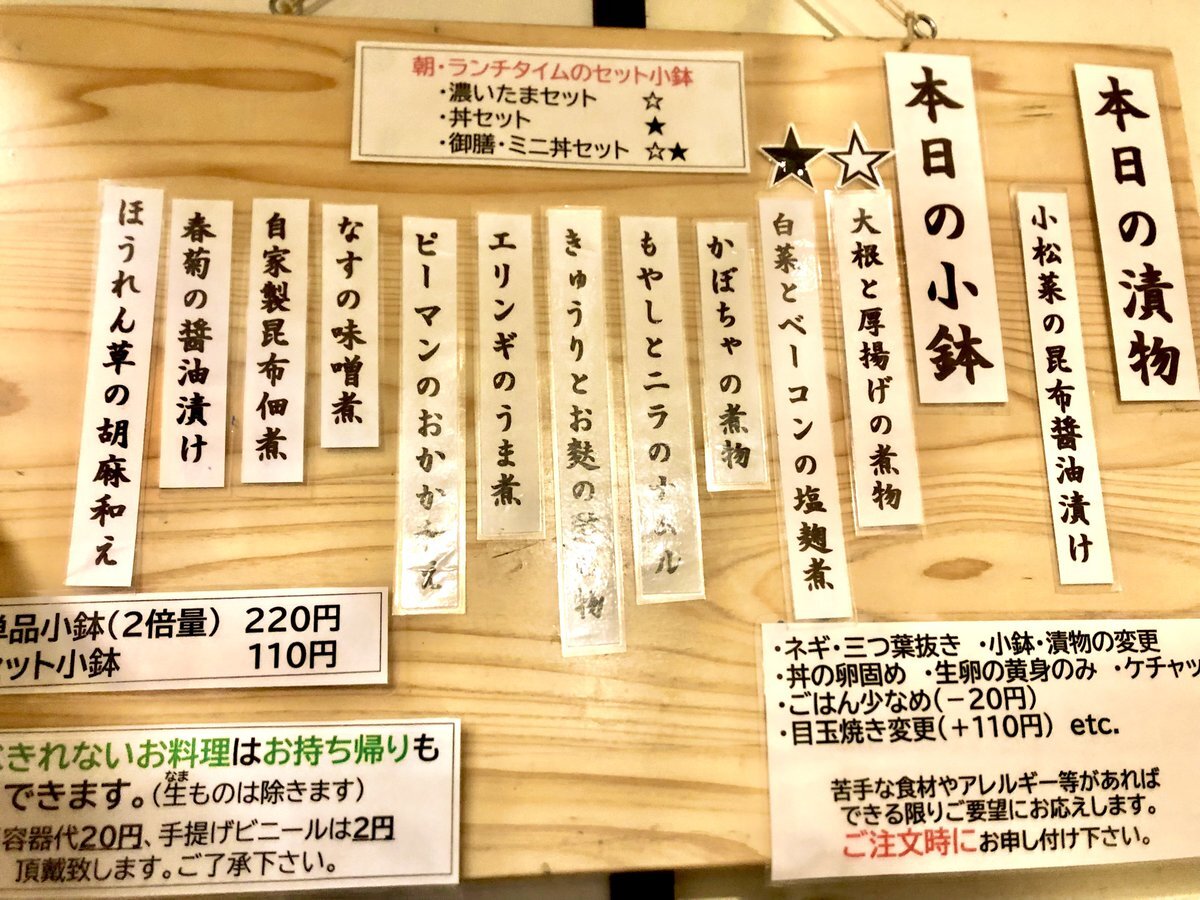 本日の漬物
小松菜の昆布醤油漬け
本日の小鉢
☆
大根と厚揚げの煮物
★
白菜とベーコンの塩麹煮
かぼちゃの煮物
もやしとニラのナムル
きゅうりとお麩の酢の物
エリンギのうま煮
ピーマンのおかか和え
なすの味噌煮
自家製昆布佃煮
春菊の醤油漬け
ほうれん草の胡麻和え
朝・ランチタイムのセット小鉢
・濃いたまセット ☆
・丼セット ★
・御膳・ミニ丼セット ☆★
単品小鉢(2倍量) 220円
セット小鉢 110円
きれないお料理はお持ち帰りも
できます。(生ものは除きます)
なま
容器代20円、手提げビニールは2円
頂戴致します。ご了承下さい。
・ネギ・三つ葉抜き ・小鉢・漬物の変更
・丼の卵固め ・生卵の黄身のみ ・ケチャッ
・ごはん少なめ(−20円)
・目玉焼き変更(+110円) etc.
苦手な食材やアレルギー等があれば
できる限りご要望にお応えします。
ご注文時にお申し付け下さい。